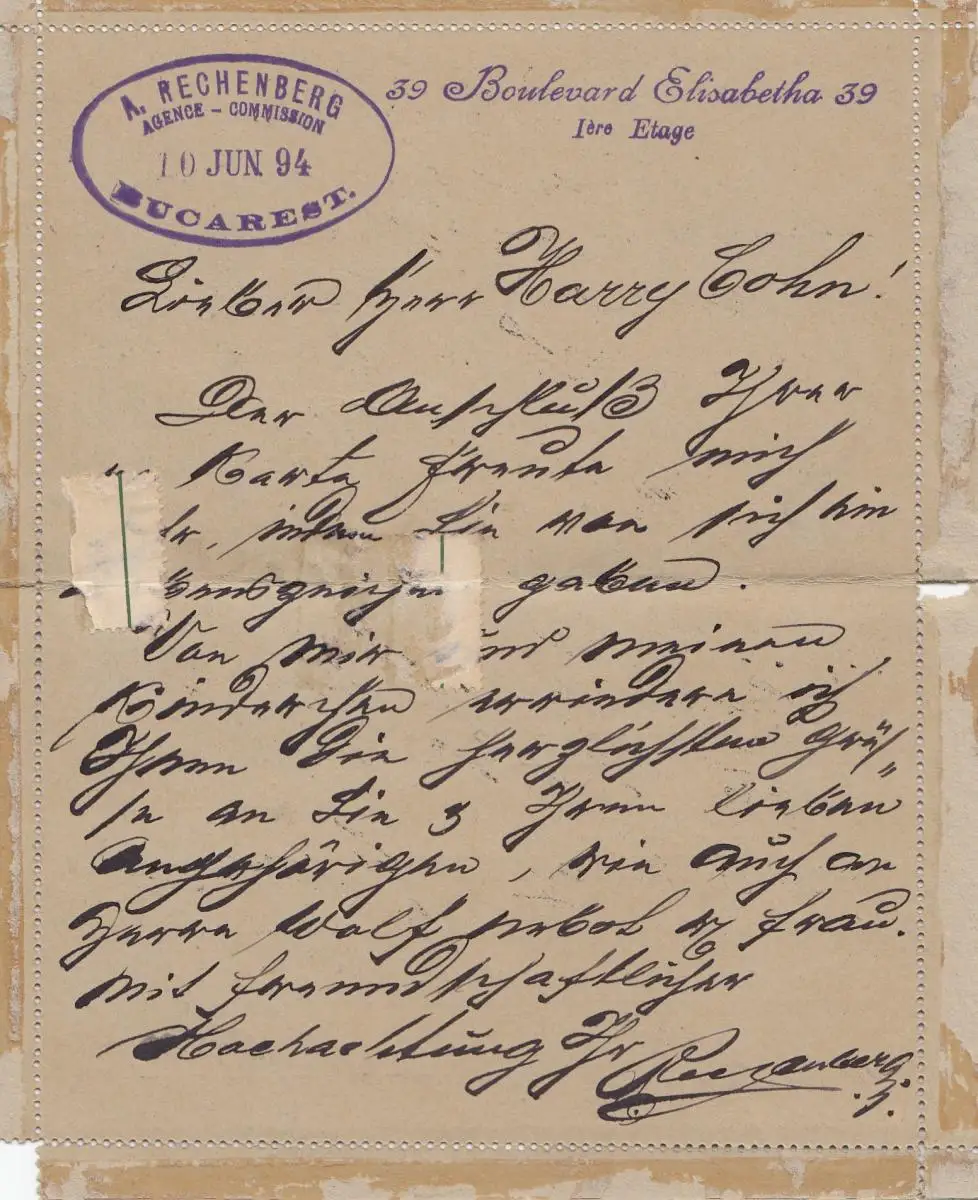 A. RECHENBERG
AGENCE - COMMISSION
10 JUN. 94
BUCAREST.
39 Boulevard Elisabetha 39
Ière Etage
Lieber Herr Harry Cohn!
Der Anschluß Ihrer
Karte freute mich
hr, indem Sie von sich ein
benszeichen gaben.
Von mir und meinen
Kinderchen erwiedere ich
Ihnen die herzlichsten Grüs„
se an Sie & Ihren lieben
Angehörigen, wie auch an
Herrn Wolf nebst Frau.
Mit freundschaftlicher
Hochachtung Ihr
Rechenberg